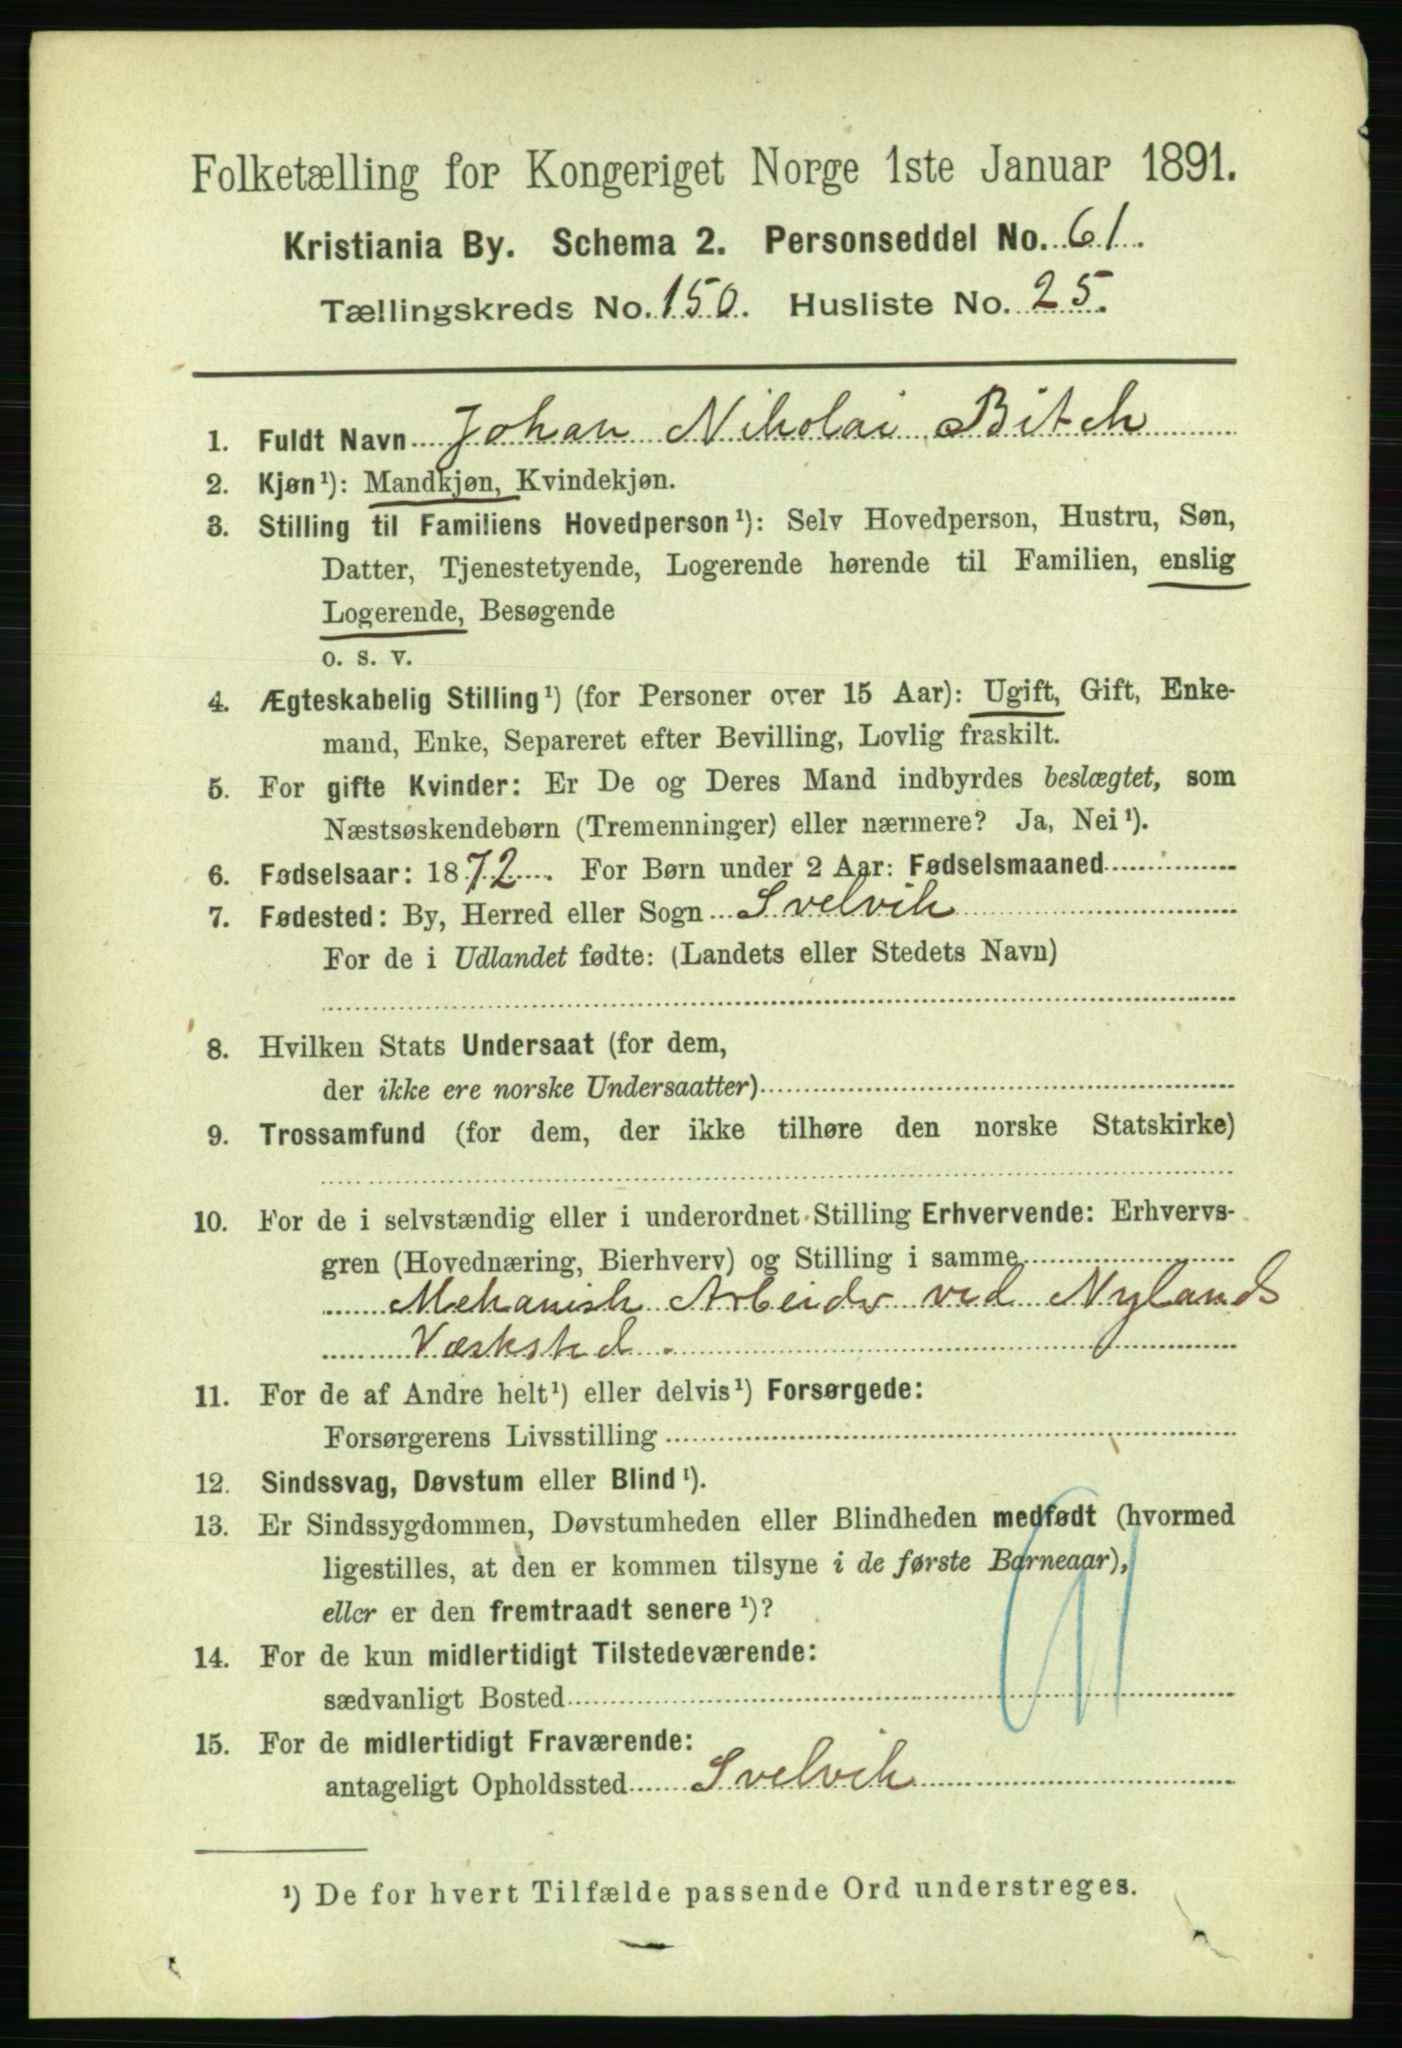 Folketælling for Kongeriget Norge 1ste Januar 1891.
Kristiania By. Schema 2. Personseddel No. 61.
Tællingskreds No. 150. Husliste No. 25.
1. Fuldt Navn Johan Nikolai Bitch
2. Kjøn¹): Mandkjøn, Kvindekjøn.
3. Stilling til Familiens Hovedperson¹): Selv Hovedperson, Hustru, Søn,
Datter, Tjenestetyende, Logerende hørende til Familien, enslig
Logerende, Besøgende
o. s. v.
4. Ægteskabelig Stilling¹) (for Personer over 15 Aar): Ugift, Gift, Enke-
mand, Enke, Separeret efter Bevilling, Lovlig fraskilt.
5. For gifte Kvinder: Er De og Deres Mand indbyrdes beslægtet, som
Næstsøskendebørn (Tremenninger) eller nærmere? Ja, Nei¹).
6. Fødselsaar: 1872. For Børn under 2 Aar: Fødselsmaaned
7. Fødested: By, Herred eller Sogn Svelvik
For de i Udlandet fødte: (Landets eller Stedets Navn)
8. Hvilken Stats Undersaat (for dem,
der ikke ere norske Undersaatter)
9. Trossamfund (for dem, der ikke tilhøre den norske Statskirke)
10. For de i selvstændig eller i underordnet Stilling Erhvervende: Erhvervs-
gren (Hovednæring, Bierhverv) og Stilling i samme
Mekanisk Arbeider ved Nylands
Værksted.
11. For de af Andre helt¹) eller delvis¹) Forsørgede:
Forsørgerens Livsstilling
12. Sindssvag, Døvstum eller Blind¹).
13. Er Sindssygdommen, Døvstumheden eller Blindheden medfødt (hvormed
ligestilles, at den er kommen tilsyne i de første Barneaar),
eller er den fremtraadt senere¹)?
14. For de kun midlertidigt Tilstedeværende:
sædvanligt Bosted
15. For de midlertidigt Fraværende:
antageligt Opholdssted Svelvik
¹) De for hvert Tilfælde passende Ord understreges.